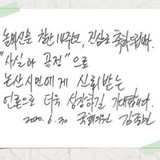 논산신문 창간 14주년, 진심으로 축하드립니다.
"사실과 공정"으로
논산시민에게 신뢰받는
언론으로 더욱 성장하길 기대합니다.
2020. 6. 30 국회의원 김종민